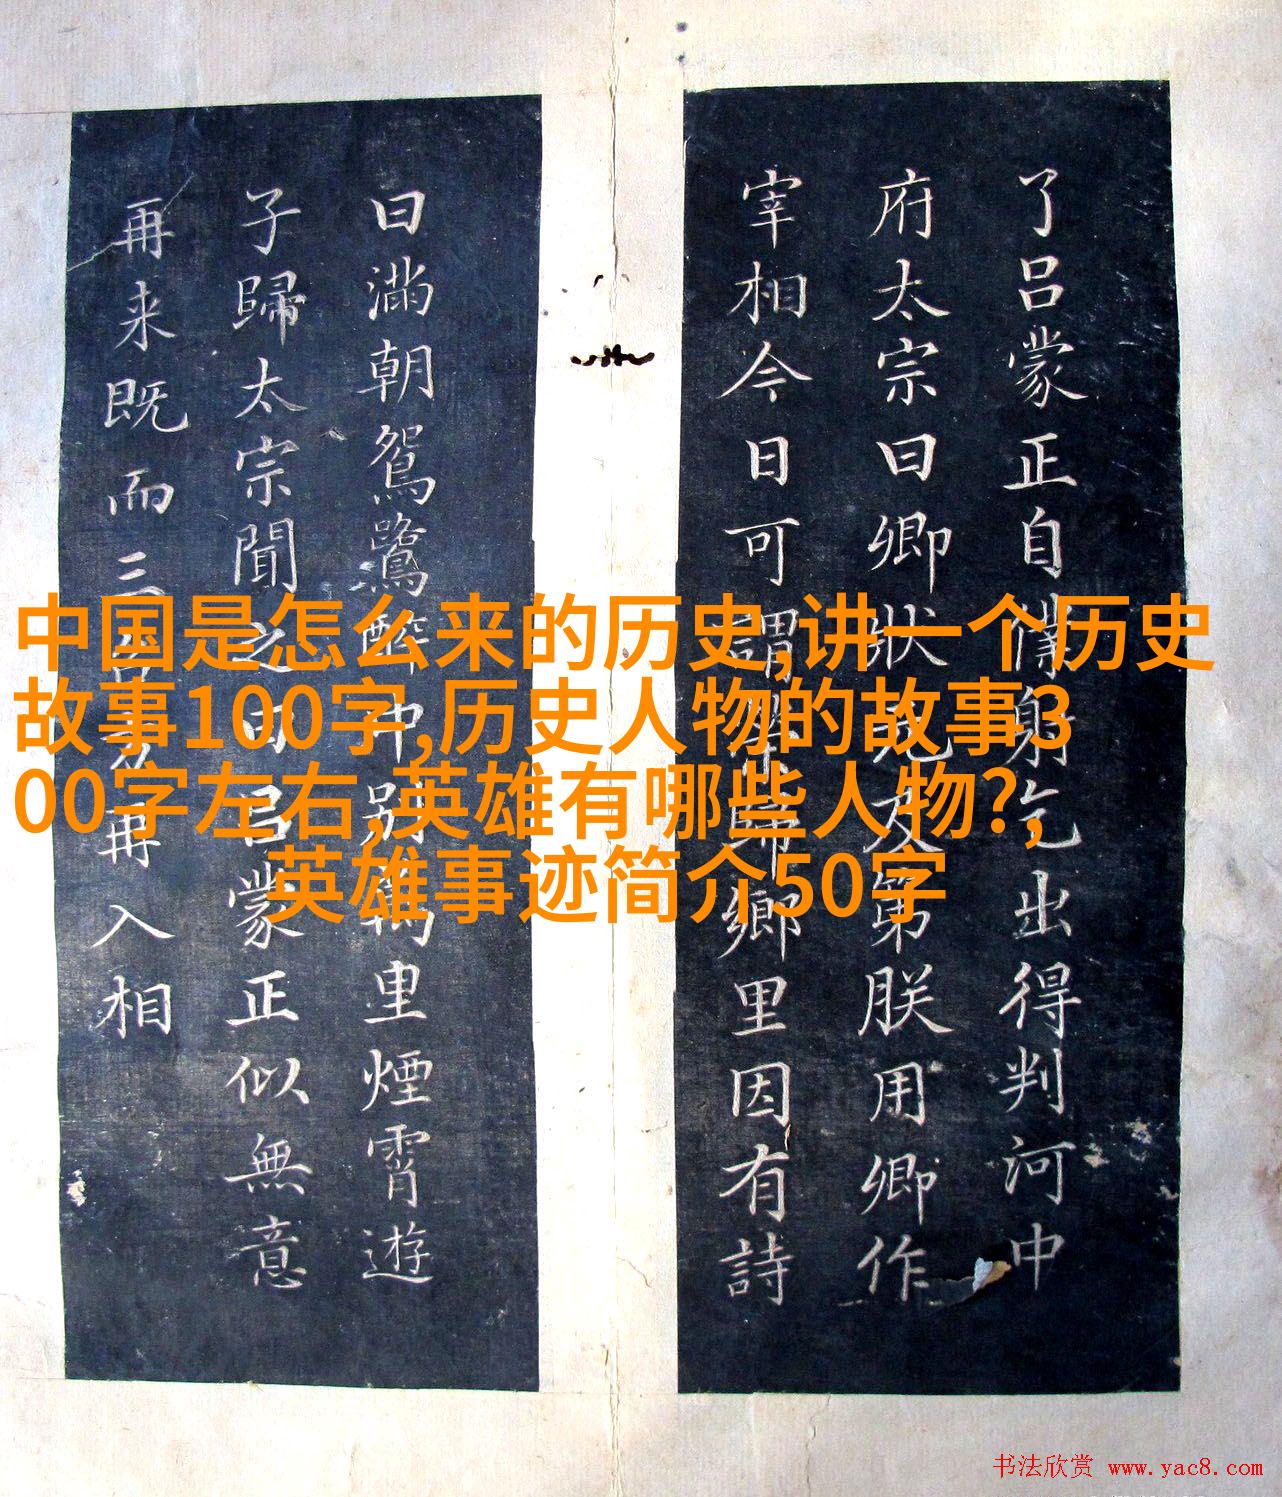 了吕蒙正自陳罪乞出得判河中
府太宗曰卿狀元及第朕用卿作
宰相今日可謂榮歸鄉里因有詩
曰滿朝鴛鷺醉中别萬里煙霄遊
子歸太宗聞之曰吕蒙正似無意
再来既而三召再入相
中国是怎么来的历史,讲一个历史
故事100字,历史人物的故事3
00字左右,英雄有哪些人物?,
英雄事迹简介50字
书法欣赏 www.yac8.com